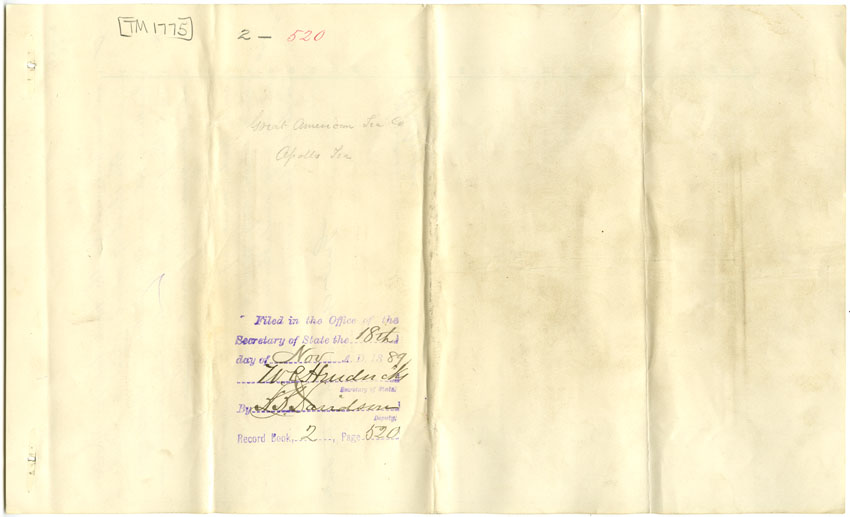 [TM 1775]
2 — 520
Great American Tea Co
Apollo Tea
Filed in the Office of the
Secretary of State the 18th
day of Nov A. D. 1889
W C Hendricks
Secretary of State
By Davidson
Deputy
Record Book, 2, Page 520